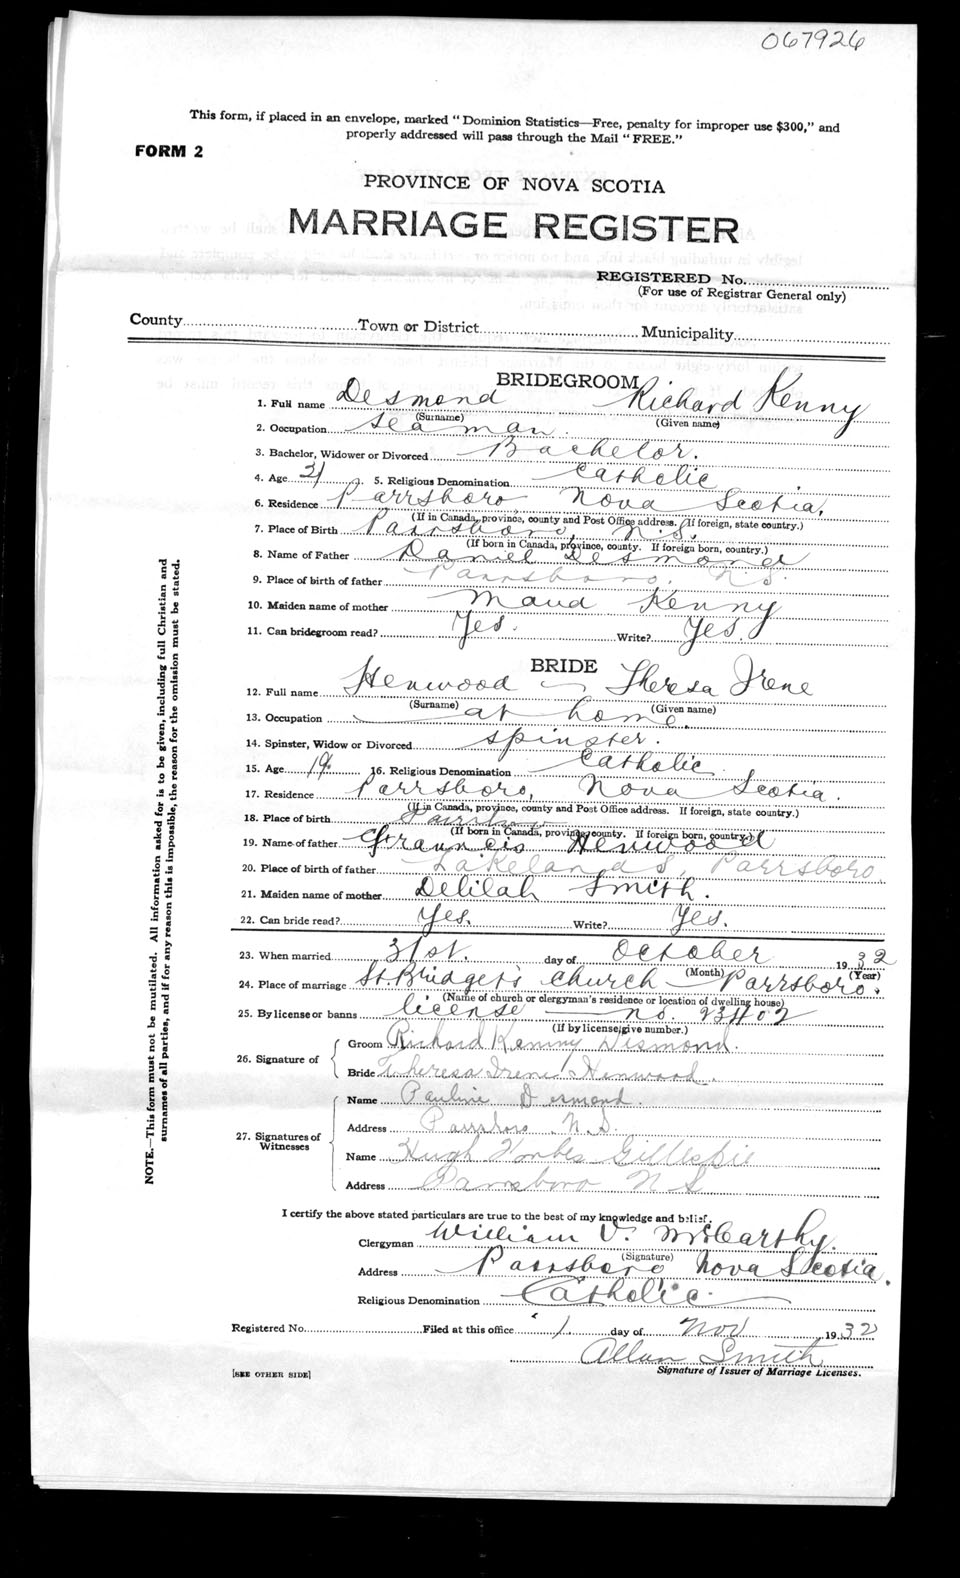 067926
This form, if placed in an envelope, marked "Dominion Statistics—Free, penalty for improper use $300," and
properly addressed will pass through the Mail "FREE."
FORM 2
PROVINCE OF NOVA SCOTIA
MARRIAGE REGISTER
REGISTERED No.
(For use of Registrar General only)
County Town or District Municipality
BRIDEGROOM
1. Full name Desmond Richard Kenny
(Surname) (Given name)
2. Occupation seaman.
3. Bachelor, Widower or Divorced Bachelor.
4. Age 21 5. Religious Denomination Catholic
6. Residence Parrsboro, Nova Scotia,
(If in Canada, province, county and Post Office address. If foreign, state country.)
7. Place of Birth Parrsboro, N.S.
(If born in Canada, province, county. If foreign born, country.)
8. Name of Father Daniel Desmond
9. Place of birth of father Parrsboro, N.S.
10. Maiden name of mother Maud Kenny
11. Can bridegroom read? Yes. Write? Yes.
BRIDE
12. Full name Henwood — Theresa Irene
(Surname) (Given name)
13. Occupation at home.
14. Spinster, Widow or Divorced spinster.
15. Age 19 16. Religious Denomination Catholic
17. Residence Parrsboro, Nova Scotia.
(If in Canada, province, county and Post Office address. If foreign, state country.)
18. Place of birth Parrsboro
(If born in Canada, province, county. If foreign born, country.)
19. Name of father Frauncis Henwood
20. Place of birth of father Lakelands, Parrsboro,
21. Maiden name of mother Delilah Smith.
22. Can bride read? Yes. Write? Yes.
23. When married 31st. day of October 1932
(Month) (Year)
24. Place of marriage St. Bridget's Church — Parrsboro.
(Name of church or clergyman's residence or location of dwelling house)
25. By license or banns license — no. 23402
(If by license, give number.)
26. Signature of
Groom Richard Kenny Desmond.
Bride Theresa Irene Henwood.
27. Signatures of Witnesses
Name Pauline Desmond.
Address Parrsboro N.S.
Name Hugh Forbes Gillespie
Address Parrsboro N S
I certify the above stated particulars are true to the best of my knowledge and belief.
Clergyman William V. McCarthy.
(Signature)
Address Parrsboro Nova Scotia.
Religious Denomination Catholic.
Registered No. Filed at this office 1. day of Nov 1932
Allan Smith
Signature of Issuer of Marriage Licenses.
[SEE OTHER SIDE]
NOTE.—This form must not be mutilated. All information asked for is to be given, including full Christian and
surnames of all parties, and if for any reason this is impossible, the reason for the omission must be stated.